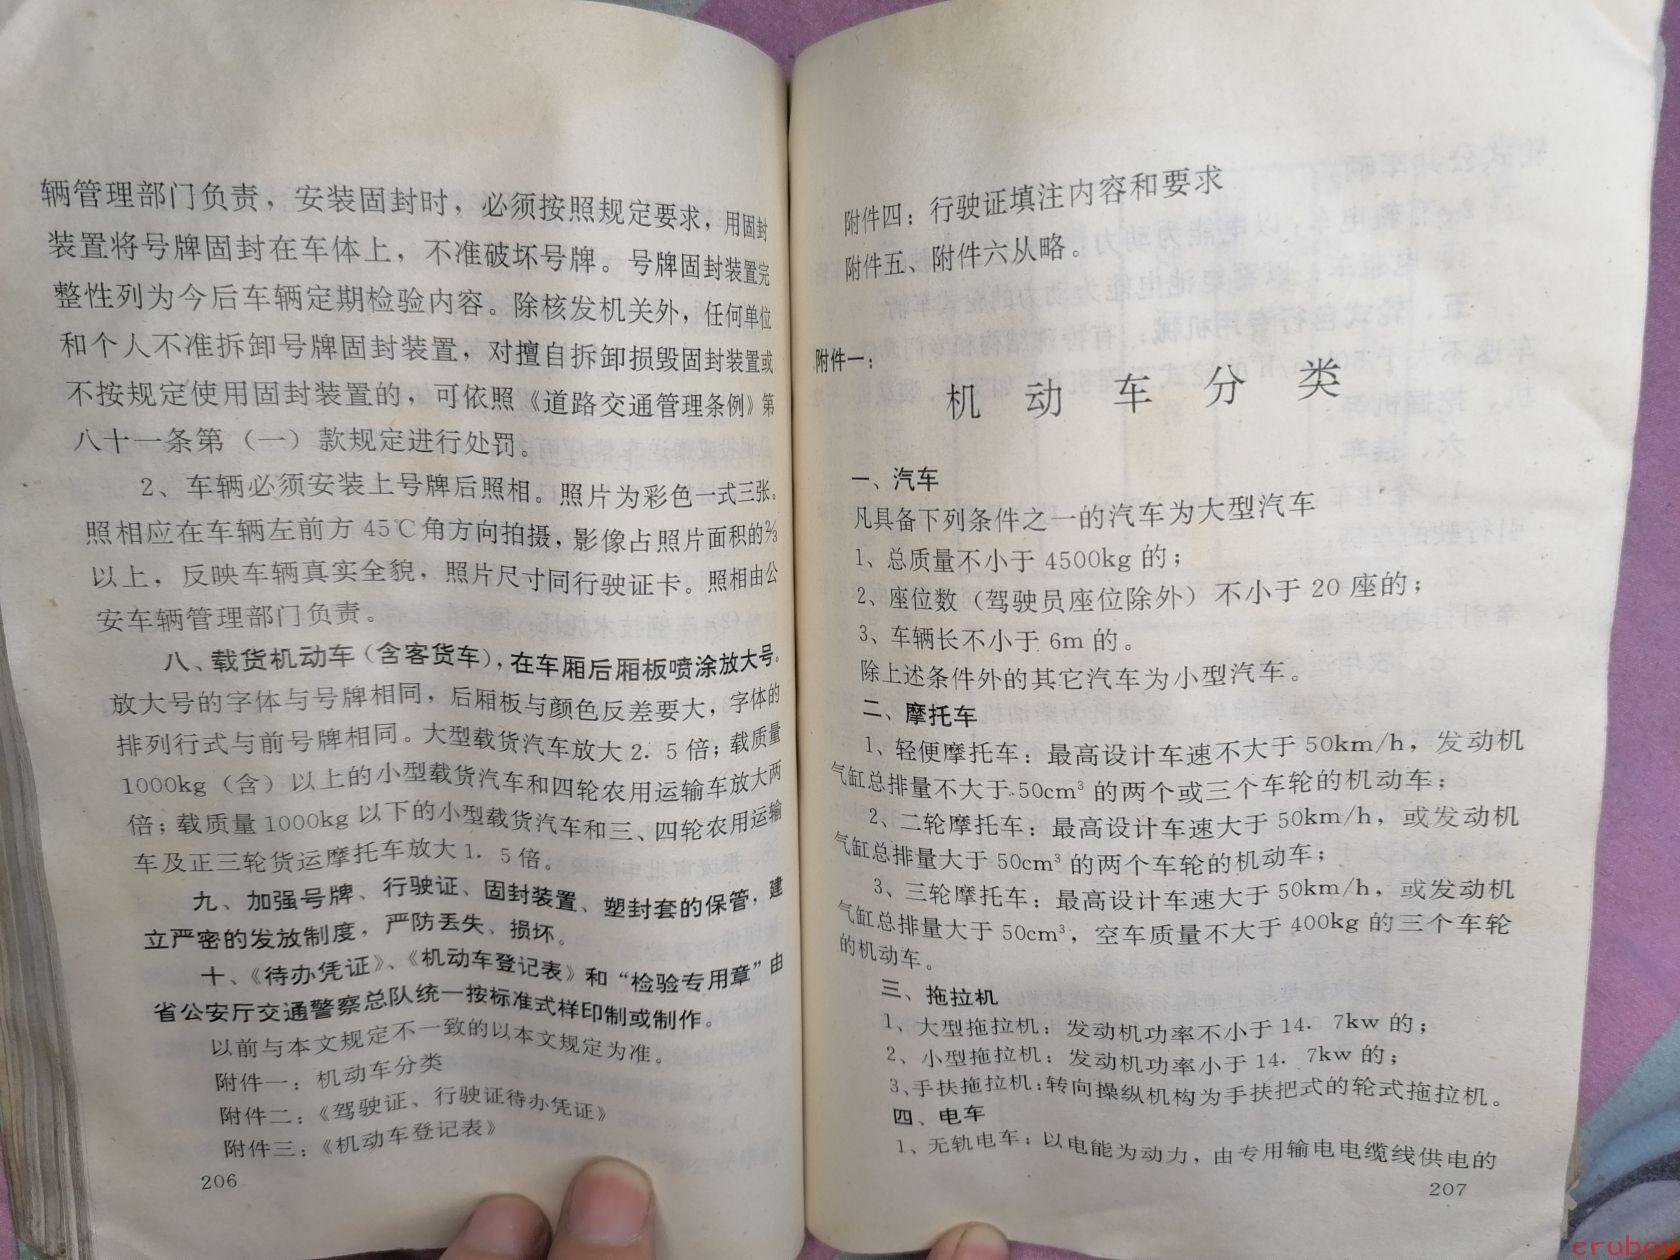 辆管理部门负责，安装固封时，必须按照规定要求，用固封
装置将号牌固封在车体上，不准破坏号牌。号牌固封装置完
整性列为今后车辆定期检验内容。除核发机关外，任何单位
和个人不准拆卸号牌固封装置，对擅自拆卸损毁固封装置或
不按规定使用固封装置的，可依照《道路交通管理条例》第
八十一条第（一）款规定进行处罚。
2、车辆必须安装上号牌后照相。照片为彩色一式三张。
照相应在车辆左前方45℃角方向拍摄，影像占照片面积的⅔
以上，反映车辆真实全貌，照片尺寸同行驶证卡。照相由公
安车辆管理部门负责。
八、载货机动车（含客货车），在车厢后厢板喷涂放大号。
放大号的字体与号牌相同，后厢板与颜色反差要大，字体的
排列行式与前号牌相同。大型载货汽车放大2．5倍；载质量
1000kg（含）以上的小型载货汽车和四轮农用运输车放大两
倍；载质量1000kg以下的小型载货汽车和三、四轮农用运输
车及正三轮货运摩托车放大1．5倍。
九、加强号牌、行驶证、固封装置、塑封套的保管，建
立严密的发放制度，严防丢失、损坏。
十、《待办凭证》、《机动车登记表》和“检验专用章”由
省公安厅交通警察总队统一按标准式样印制或制作。
以前与本文规定不一致的以本文规定为准。
附件一：机动车分类
附件二：《驾驶证、行驶证待办凭证》
附件三：《机动车登记表》
206
附件四：行驶证填注内容和要求
附件五、附件六从略。
附件一：
机动车分类
一、汽车
凡具备下列条件之一的汽车为大型汽车
1、总质量不小于4500kg的；
2、座位数（驾驶员座位除外）不小于20座的；
3、车辆长不小于6m的。
除上述条件外的其它汽车为小型汽车。
二、摩托车
1、轻便摩托车：最高设计车速不大于50km/h，发动机
气缸总排量不大于50cm³的两个或三个车轮的机动车；
2、二轮摩托车：最高设计车速大于50km/h，或发动机
气缸总排量大于50cm³的两个车轮的机动车；
3、三轮摩托车：最高设计车速大于50km/h，或发动机
气缸总排量大于50cm³，空车质量不大于400kg的三个车轮
的机动车。
三、拖拉机
1、大型拖拉机：发动机功率不小于14．7kw的；
2、小型拖拉机：发动机功率小于14．7kw的；
3、手扶拖拉机：转向操纵机构为手扶把式的轮式拖拉机。
四、电车
1、无轨电车：以电能为动力，由专用输电电缆线供电的
207
cruboy